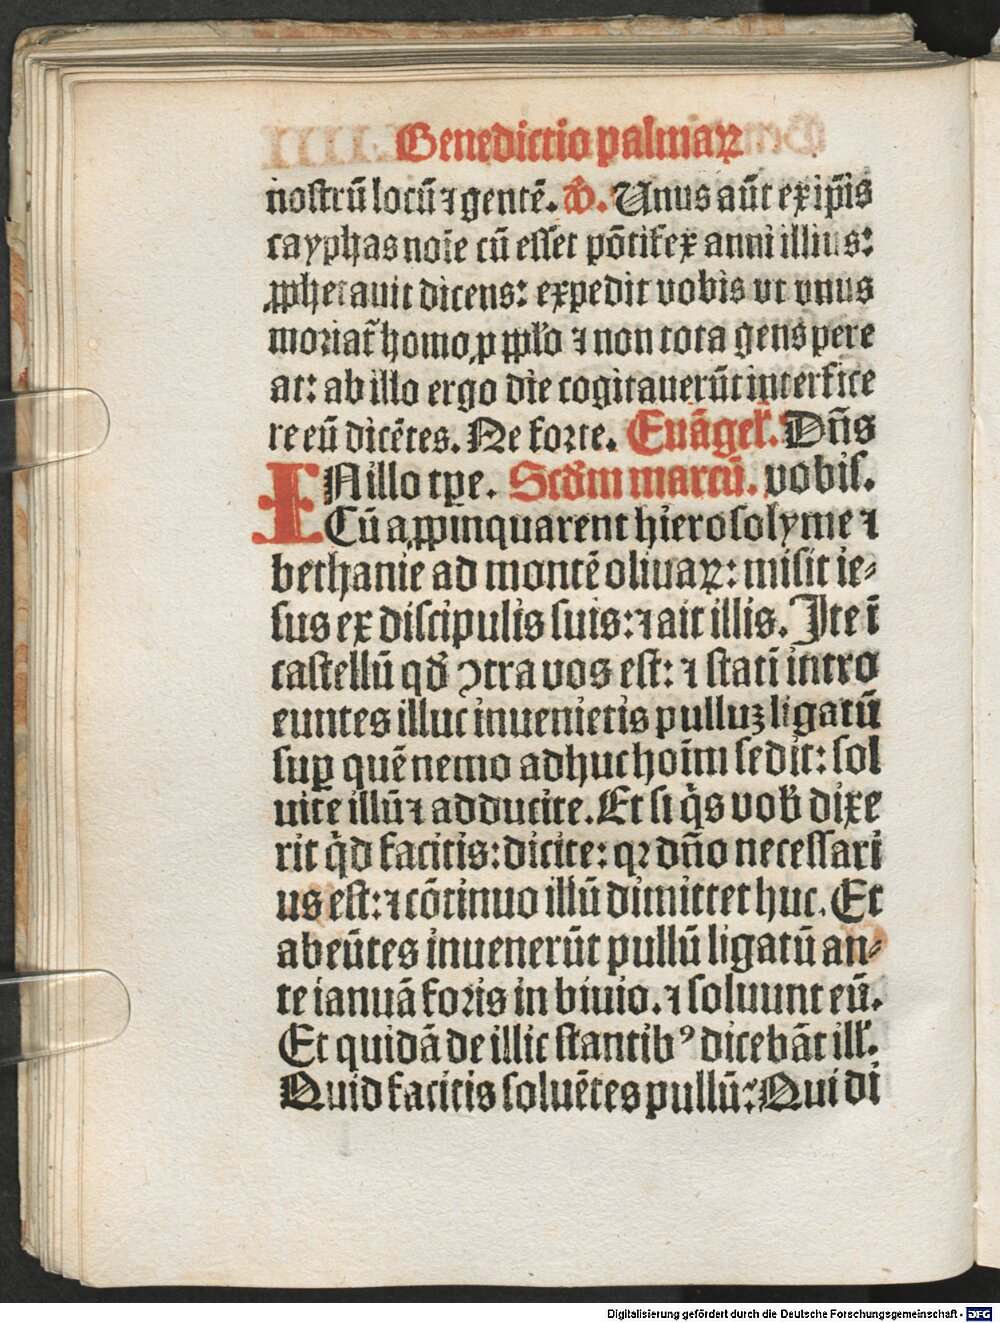 Benedictio palmaꝝ
nostrū locū ⁊ gentē. v̄. Unus aūt ex ip̄is
cayphas noīe cū esset pōtifex anni illius:
ꝓphetauit dicens: expedit vobis vt vnus
moriat̄ homo ꝓ pplo ⁊ non tota gens pere
at: ab illo ergo die cogitauerūt interfice
re eū dicētes. Ne forte. Euāgel̄. Dn̄s
INillo tꝑe. Scd̄m marcū. vobis.
Cū aꝓpinquarent hierosolyme ⁊
bethanie ad montē oliuaꝝ: misit ie⸗
sus ex discipulis suis: ⁊ ait illis. Ite ī
castellū qd̄ ↄtra vos est: ⁊ stati intro
euntes illuc inuenietis pulluꝫ ligatū
suꝑ quē nemo adhuc hoīm sedit: sol
uite illū ⁊ adducite. Et si q̇s vob̄ dixe
rit q̇d facitis: dicite: qꝛ dn̄o necessari
us est: ⁊ cōtinuo illū dimittet huc. Et
abeūtes inuenerūt pullū ligatū an⸗
te ianuā foris in biuio. ⁊ soluunt eū.
Et quidā de illic stantibꝰ dicebāt ill̄.
Quid facitis soluētes pullū: Qui di
Digitalisierung gefördert durch die Deutsche Forschungsgemeinschaft - DFG